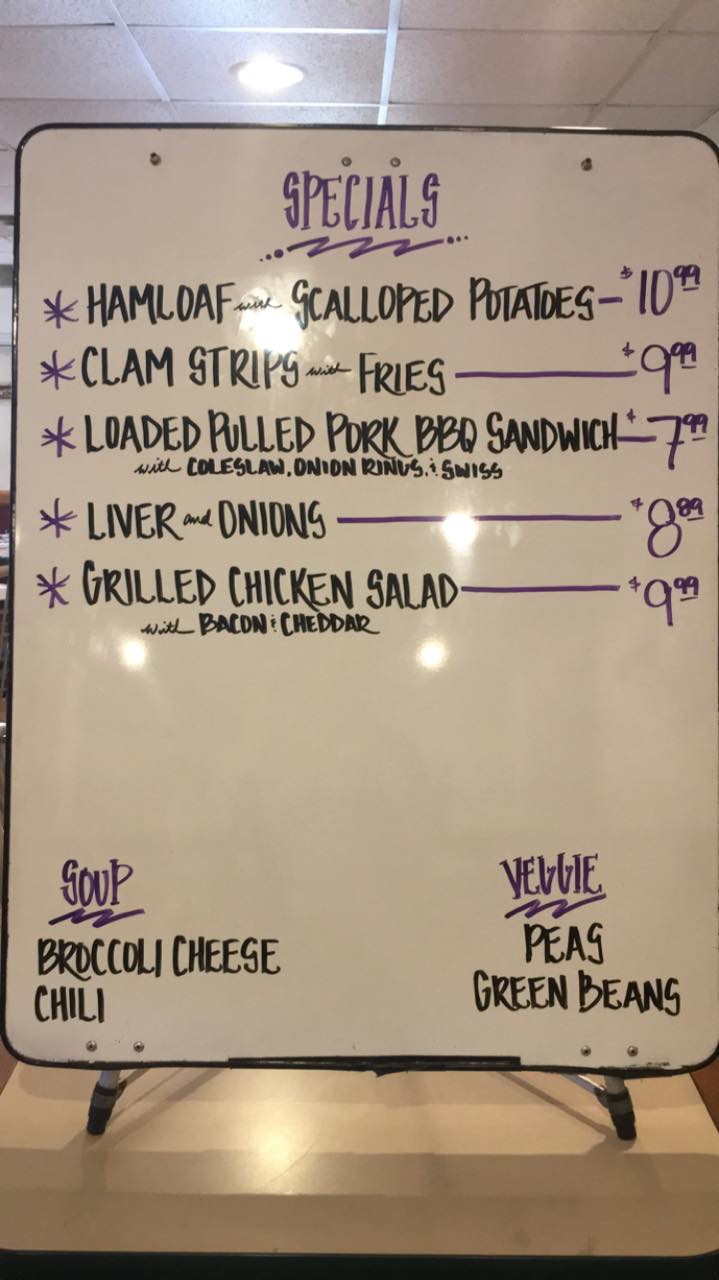 SPECIALS
* HAMLOAF with SCALLOPED POTATOES - $10.99
* CLAM STRIPS with FRIES - $9.99
* LOADED PULLED PORK BBQ SANDWICH - $7.99
with COLESLAW, ONION RINGS, & SWISS
* LIVER and ONIONS - $8.89
* GRILLED CHICKEN SALAD - $9.99
with BACON & CHEDDAR
SOUP
BROCCOLI CHEESE
CHILI
VEGGIE
PEAS
GREEN BEANS